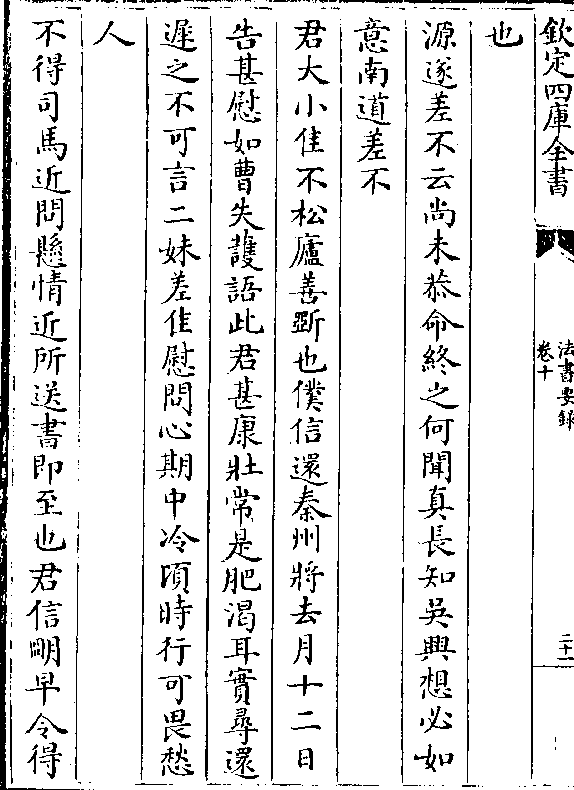 欽定四庫全書
法書要録
卷十
二十一
也
源遂差不云尚未恭命終之何聞真長知吳興想必如
意南道差不
君大小佳不松廬善斵也僕信還秦州將去月十二日
告甚慰如曹失䕶語此君甚康壯常是肥渴耳實尋還
遲之不可言二妹差佳慰問心期中冷頃時行可畏愁
人
不得司馬近問懸情近所送書即至也君信明早令得